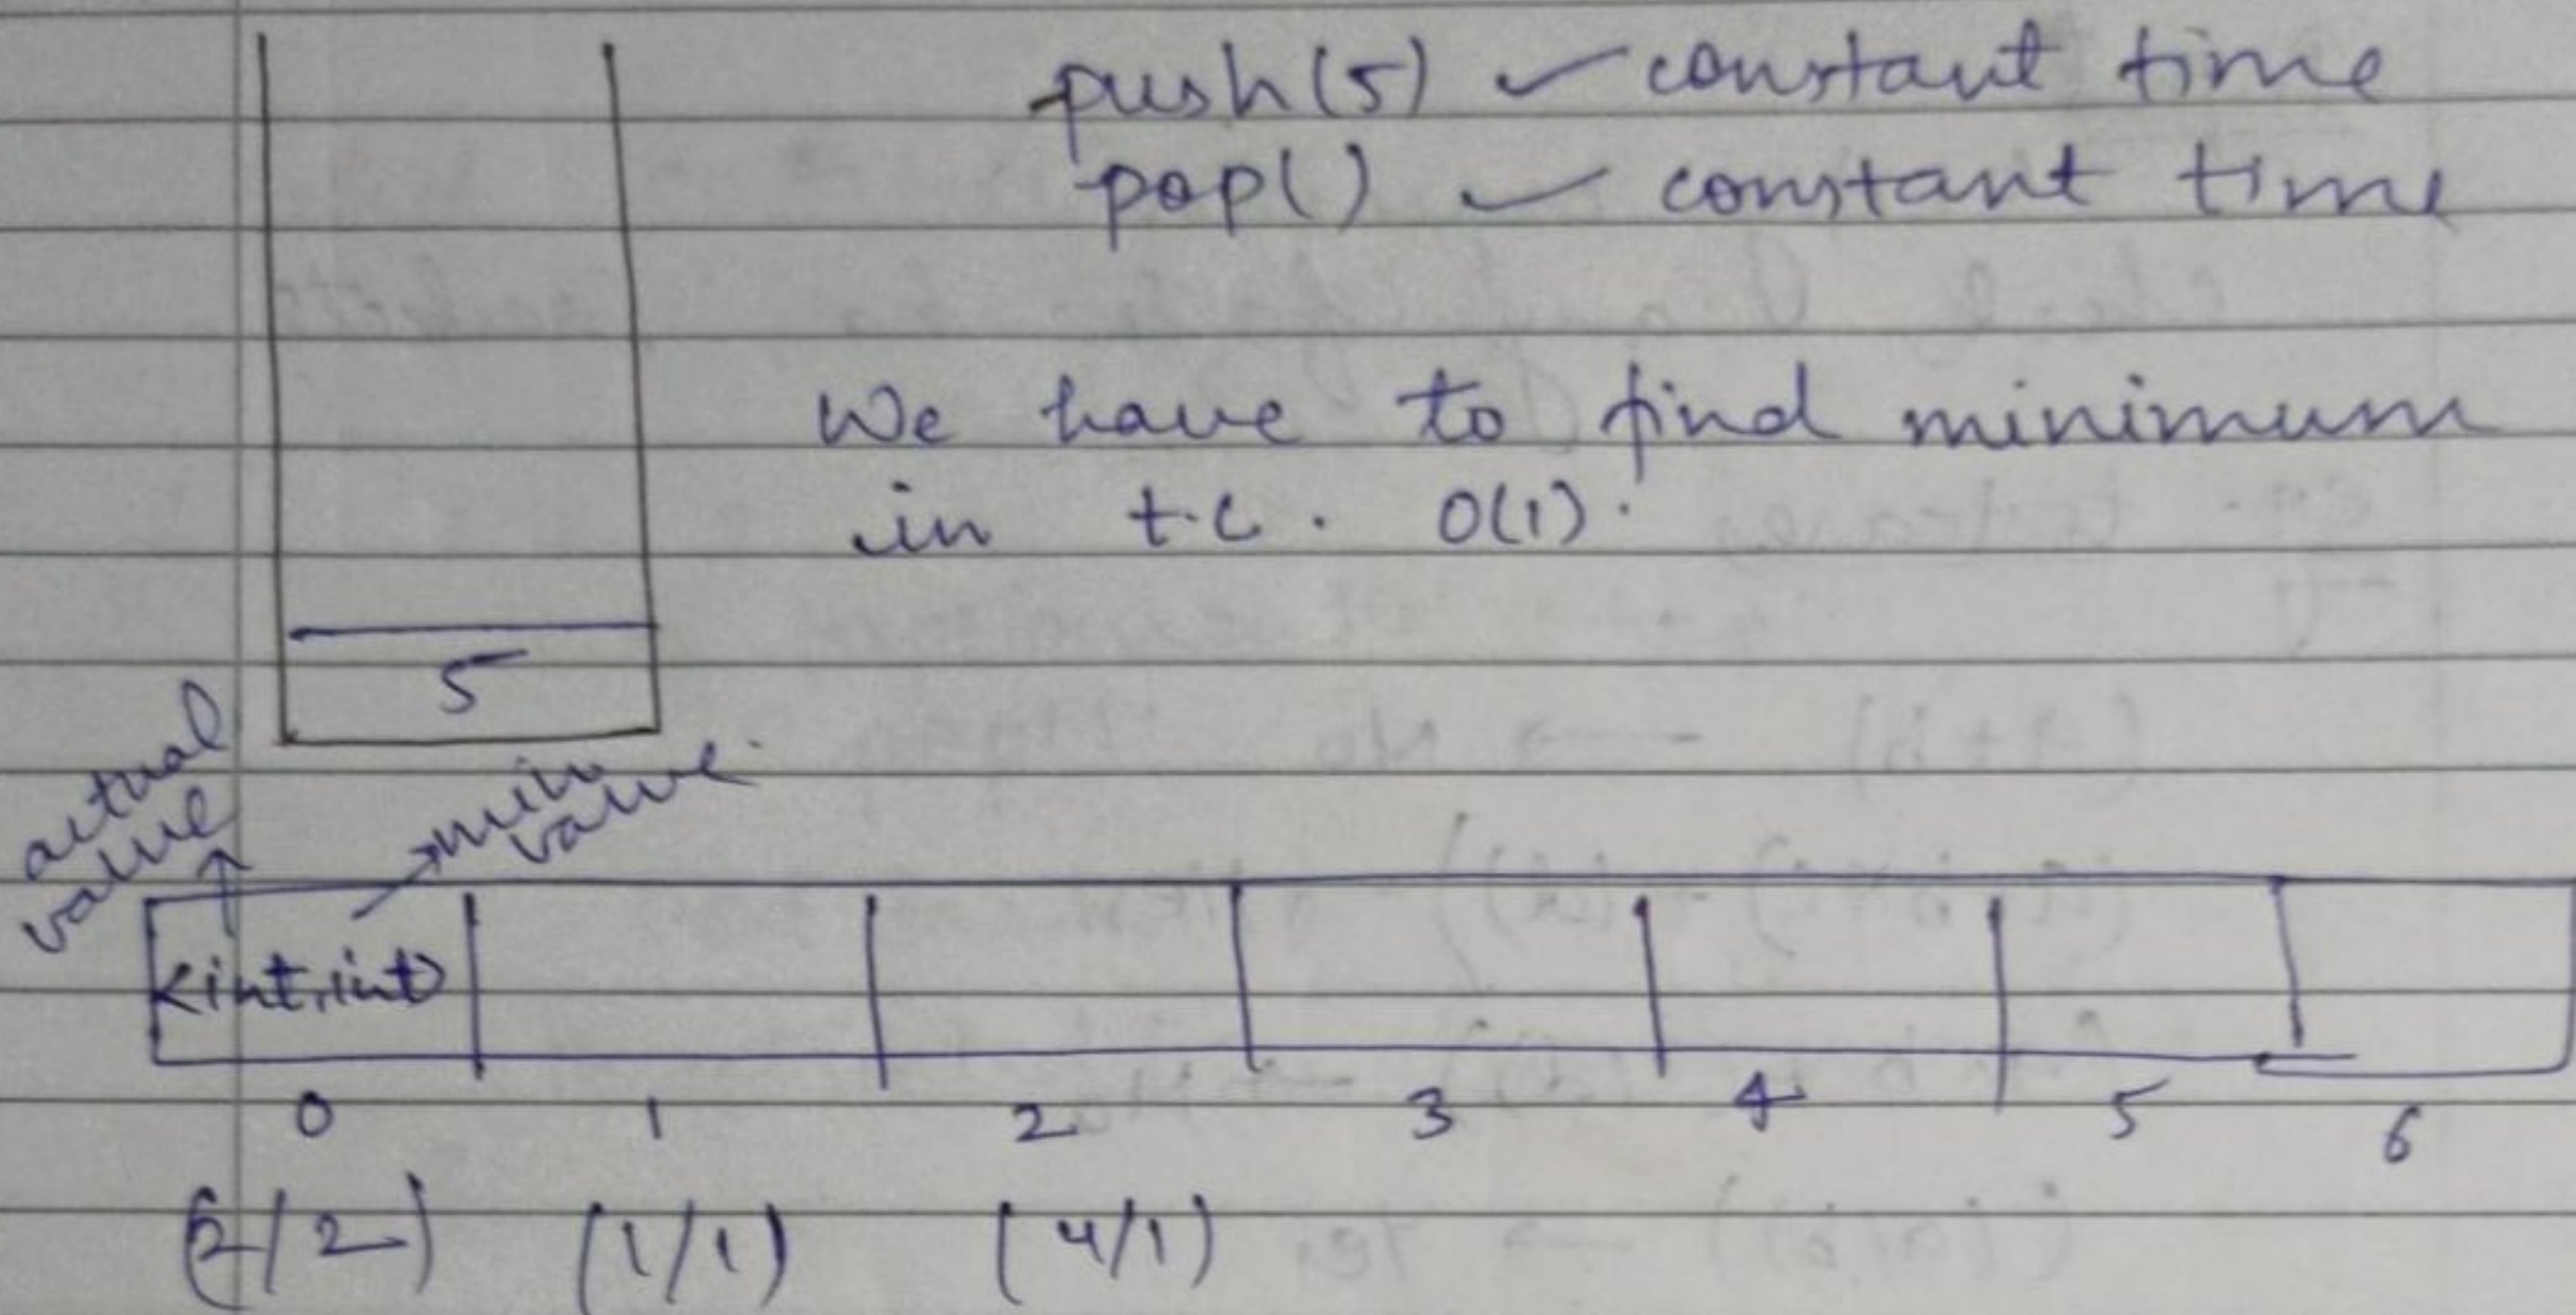 push(5) ✓ constant time
pop() ✓ constant time
We have to find minimum
in t.c. O(1).
5
actual
value
min
value.
<int,int>
0 1 2 3 4 5 6
(2/2) (1/1) (4/1)